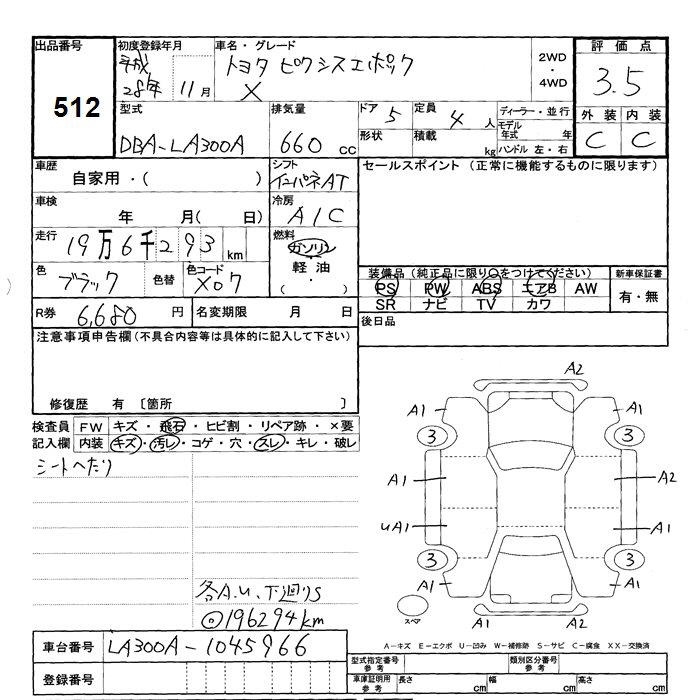 出品番号 初度登録年月 車名・グレード 2WD・4WD 評価点
512 平成28年11月 トヨタ ピクシスエポック X 3.5
型式 排気量 ドア 5 定員 4人 ディーラー・並行 外装 内装
DBA-LA300A 660cc 形状 積載 kg モデル年式 年 ハンドル 左・右 C C
車歴 シフト セールスポイント (正常に機能するものに限ります)
自家用・( ) インパネAT
車検 年 月( 日) 冷房 A/C
走行 19万6千293km 燃料 ガソリン
軽油
・( )
色 ブラック 色替 色コード X07
装備品(純正品に限り○をつけてください) 新車保証書
PS PW ABS エアB AW 有・無
SR ナビ TV カワ
R券 6,680円 名変期限 月 日 後日品
注意事項申告欄(不具合内容等は具体的に記入して下さい)
修復歴 有 〔箇所 〕
検査員記入欄 FW キズ・飛石・ヒビ割・リペア跡・×要
内装 キズ・汚レ・コゲ・穴・スレ・キレ・破レ
シートへたり
A2
A1 A1
3 3
A1 A2
uA1 A1
3 3
A1 A1
A1 A2
スペア
各A.U、下廻りS
◎196294km
A-キズ E-エクボ U-凹み W-補修跡 S-サビ C-腐食 XX-交換済
車台番号 LA300A-1045966
登録番号
型式指定番号 参考 類別区分番号 参考
車庫証明用 参考 長さ cm 幅 cm 高さ cm